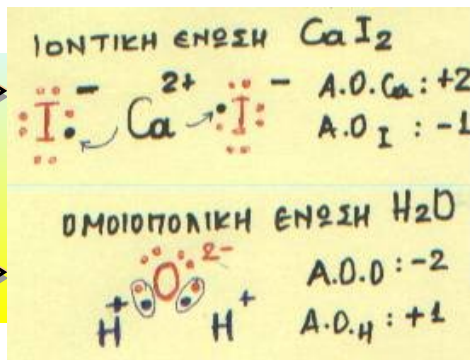 ΙΟΝΤΙΚΗ ΕΝΩΣΗ CaI₂
I⁻ Ca²⁺ I⁻
A.O.Ca: +2
A.O I : -1
ΟΜΟΙΟΠΟΛΙΚΗ ΕΝΩΣΗ H₂O
O²⁻
H⁺ H⁺
A.O.O: -2
A.O.H: +1